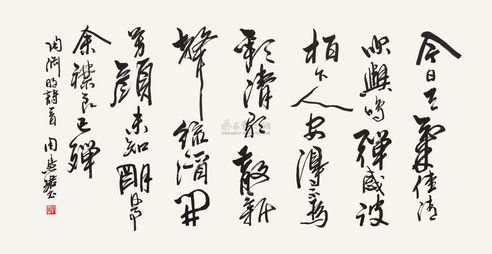 今日天氣佳清
吹與鳴彈感彼
柏下人安得不為
歡清歌散新
聲綠酒開
芳顏未知明日事
余襟良已殫
陶渊明詩一首 周慧珺書